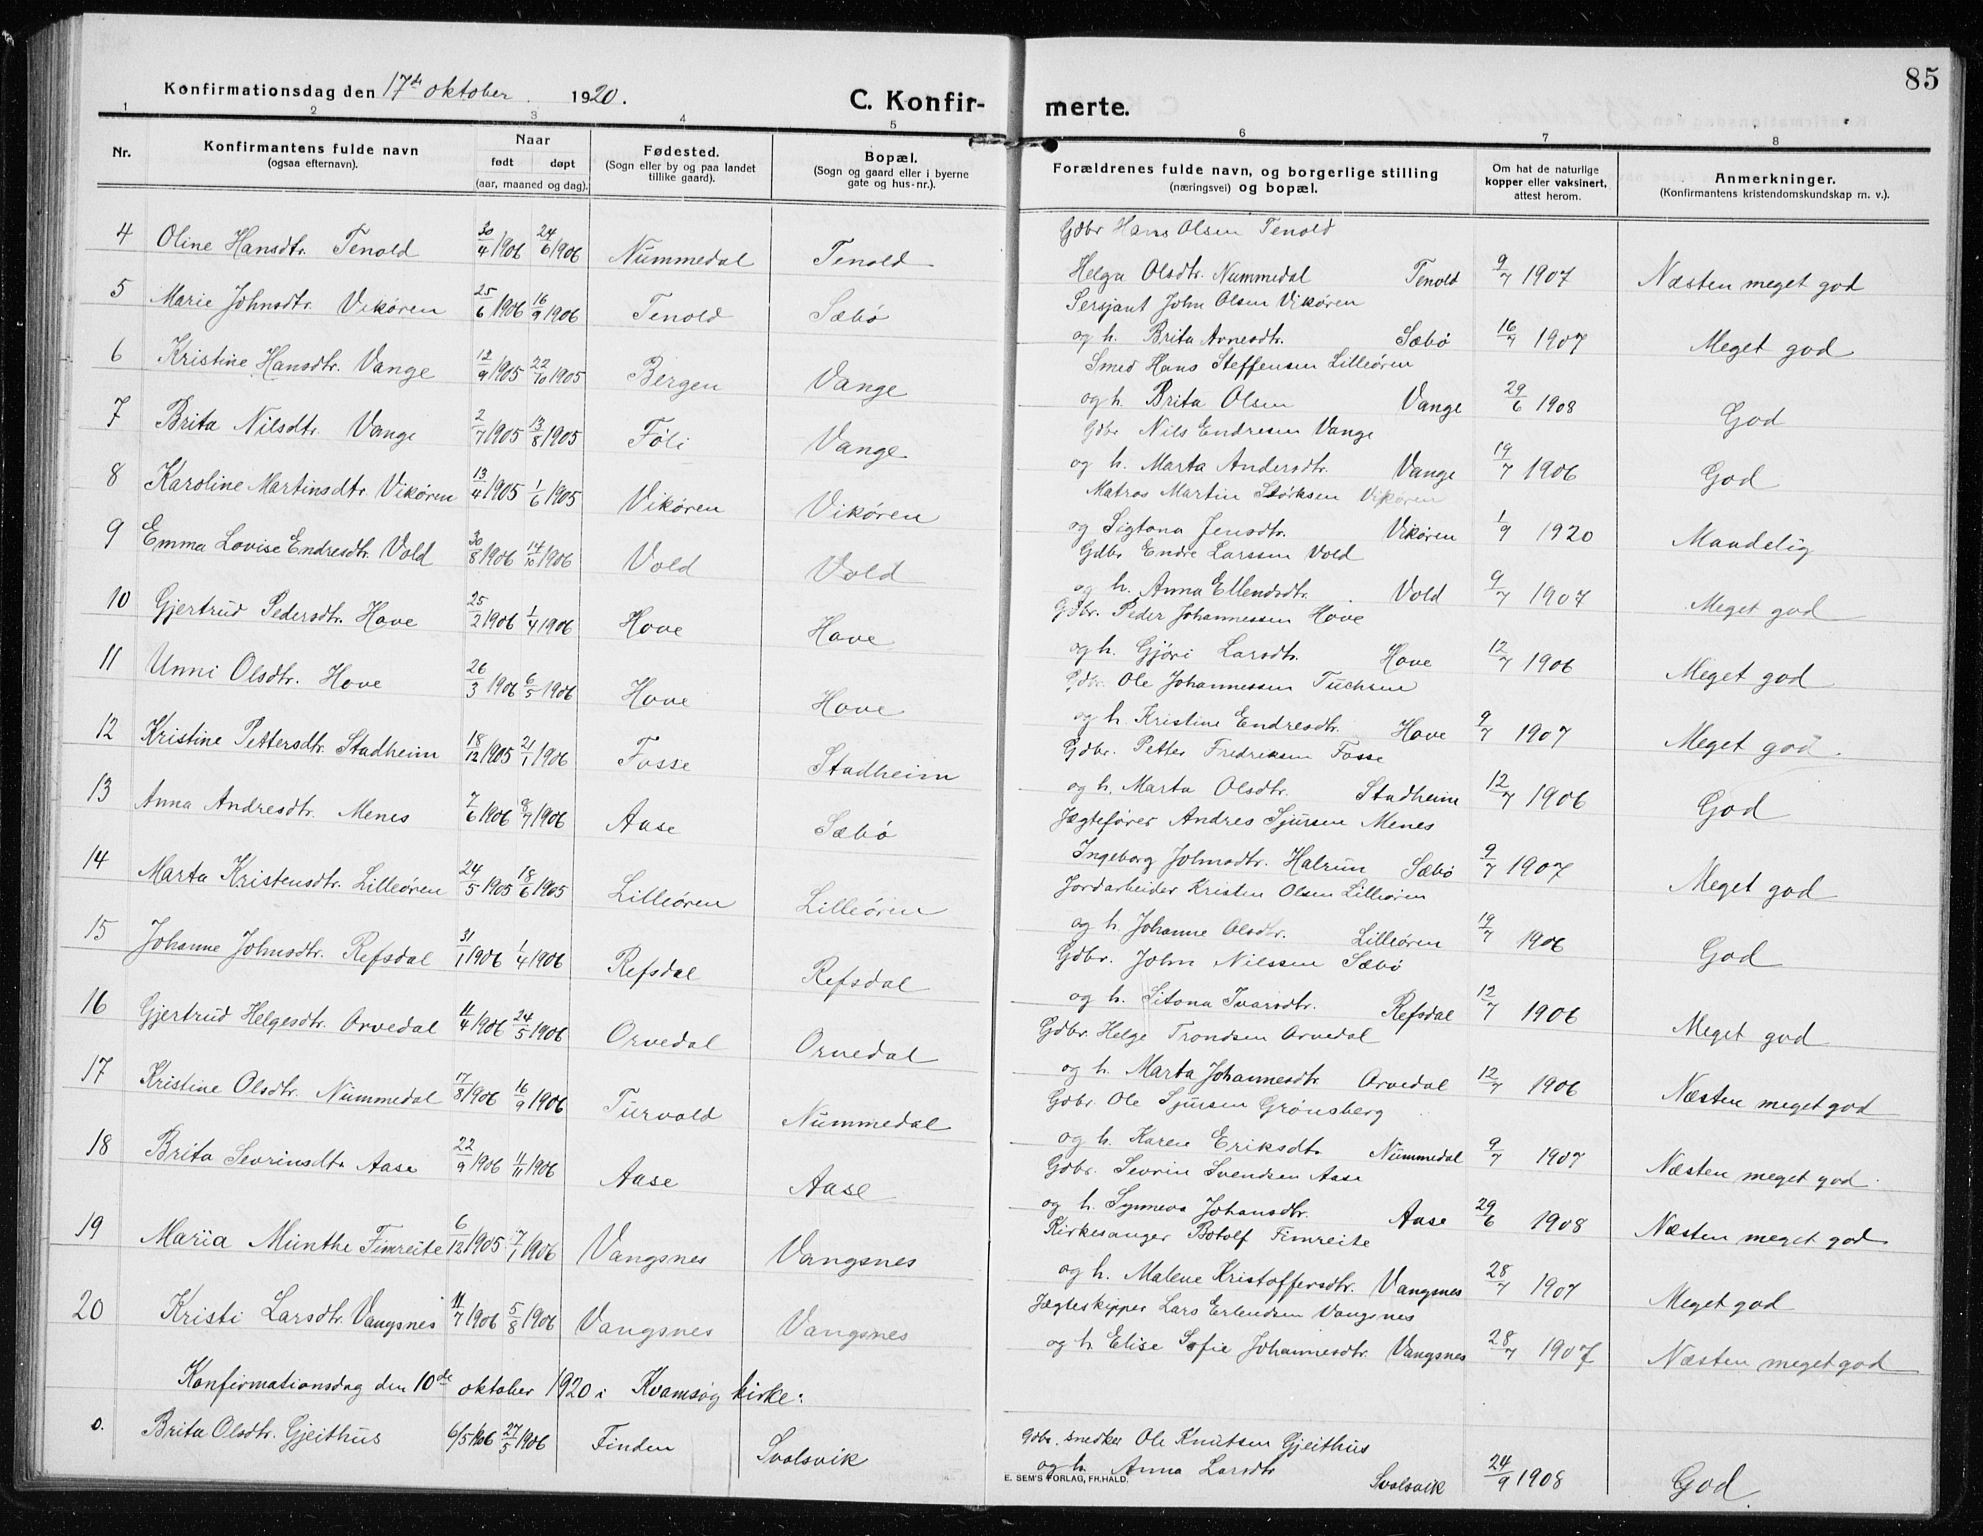 85
Konfirmationsdag den 17de oktober 1920.
C. Konfir- merte.
1 2 3 4 5 6 7 8
Nr. Konfirmantens fulde navn (ogsaa efternavn). Naar født døpt (aar, maaned og dag). Fødested. (Sogn eller by og paa landet tillike gaard). Bopæl. (Sogn og gaard eller i byerne gate og hus-nr.). Forældrenes fulde navn, og borgerlige stilling (næringsvei) og bopæl. Om hat de naturlige kopper eller vaksinert, attest herom. Anmerkninger. (Konfirmantens kristendomskundskap m. v.).
Gdbr Hans Olsen Tenold
4 Oline Hansdtr. Tenold 30/4 1906 24/6 1906 Nummedal Tenold Helga Olsdtr. Nummedal Tenold 9/7 1907 Næsten meget god
Sersjant John Olsen Vikøren
5 Marie Johnsdtr. Vikøren 25/6 1906 16/9 1906 Tenold Sæbø og h. Brita Arnesdtr. Sæbø 16/7 1907 Meget god
Smed Hans Steffensen Lilleøren
6 Kristine Hansdtr. Vange 12/9 1905 22/10 1905 Bergen Vange og h. Brita Olsen Vange 29/6 1908 God
Gdbr Nils Endresen Vange
7 Brita Nilsdtr. Vange 2/7 1905 13/8 1905 Føli Vange og h. Marta Andersdtr. Vange 19/7 1906 God
Matros Martin Størksen Vikøren
8 Karoline Martinsdtr. Vikøren 13/4 1905 1/6 1905 Vikøren Vikøren og Sigtona Jensdtr. Vikøren 1/9 1920 Maadelig
Gdbr Endre Larssen Vold
9 Emma Lovise Endresdtr. Vold 30/8 1906 14/10 1906 Vold Vold og h. Anna Ellendsdtr. Vold 9/7 1907 Meget god
Gdbr. Peder Johannessen Hove
10 Gjertrud Pedersdtr. Hove 25/2 1906 1/4 1906 Hove Hove og h. Gjøri Larsdtr. Hove 12/7 1906 Meget god
Gdbr. Ole Johannessen Tuchsen
11 Unni Olsdtr. Hove 26/3 1906 6/5 1906 Hove Hove og h. Kristine Endresdtr. Hove 9/7 1907 Meget god.
Gdbr. Petter Fredriksen Fosse
12 Kristine Pettersdtr. Stadheim 18/12 1905 21/1 1906 Fosse Stadheim og h. Marta Olsdtr. Stadheim 12/7 1906 God
Jægtefører Andres Sjursen Menes
13 Anna Andresdtr. Menes 7/6 1906 8/7 1906 Aase Sæbø Ingeborg Johnsdtr. Halrun Sæbø 9/7 1907 Meget god
Jordarbeider Kristen Olsen Lilleøren
14 Marta Kristensdtr. Lilleøren 24/5 1905 18/6 1905 Lilleøren Lilleøren og h. Johanne Olsdtr. Lilleøren 19/7 1906 God
Gdbr. John Nilssen Sæbø
15 Johanne Johnsdtr. Refsdal 31/1 1906 1/4 1906 Refsdal Refsdal og h. Sitona Ivarsdtr. Refsdal 12/7 1906 Meget god
Gdbr. Helge Trondsen Orvedal
16 Gjertrud Helgesdtr. Orvedal 11/4 1906 24/5 1906 Orvedal Orvedal og h. Marta Johannesdtr Orvedal 12/7 1906 Næsten meget god
Gdbr. Ole Sjursen Grønsberg
17 Kristine Olsdtr. Nummedal 17/8 1906 16/9 1906 Turvold Nummedal og h. Karen Eriksdtr. Nummedal 9/7 1907 Næsten meget god.
Gdbr. Sevrin Svendsen Aase
18 Brita Sevrinsdtr Aase 22/9 1906 11/11 1906 Aase Aase og h. Synneva Johansdtr. Aase 29/6 1908 Næsten meget god
Kirkesanger Botolf Fimreite
19 Maria Munthe Fimreite 6/12 1905 7/1 1906 Vangsnes Vangsnes og h. Malene Kristoffersdtr. Vangsnes 28/7 1907 Meget god
Jægteskipper Lars Erlendsen Vangsnes
20 Kristi Larsdtr. Vangsnes 11/7 1906 5/8 1906 Vangsnes Vangsnes og h. Elise Sofie Johannesdtr. Vangsnes 28/7 1907 Næsten meget god
Konfirmationsdag den 10de oktober 1920 i Kvamsøy kirke:
Gdbr. snedker Ole Knutsen Gjeithus
0. Brita Olsdtr. Gjeithus 6/5 1906 27/5 1906 Finden Svolsvik og h. Anna Larsdtr Svolsvik 24/9 1908 God.
E. SEM'S FORLAG, FR.HALD.